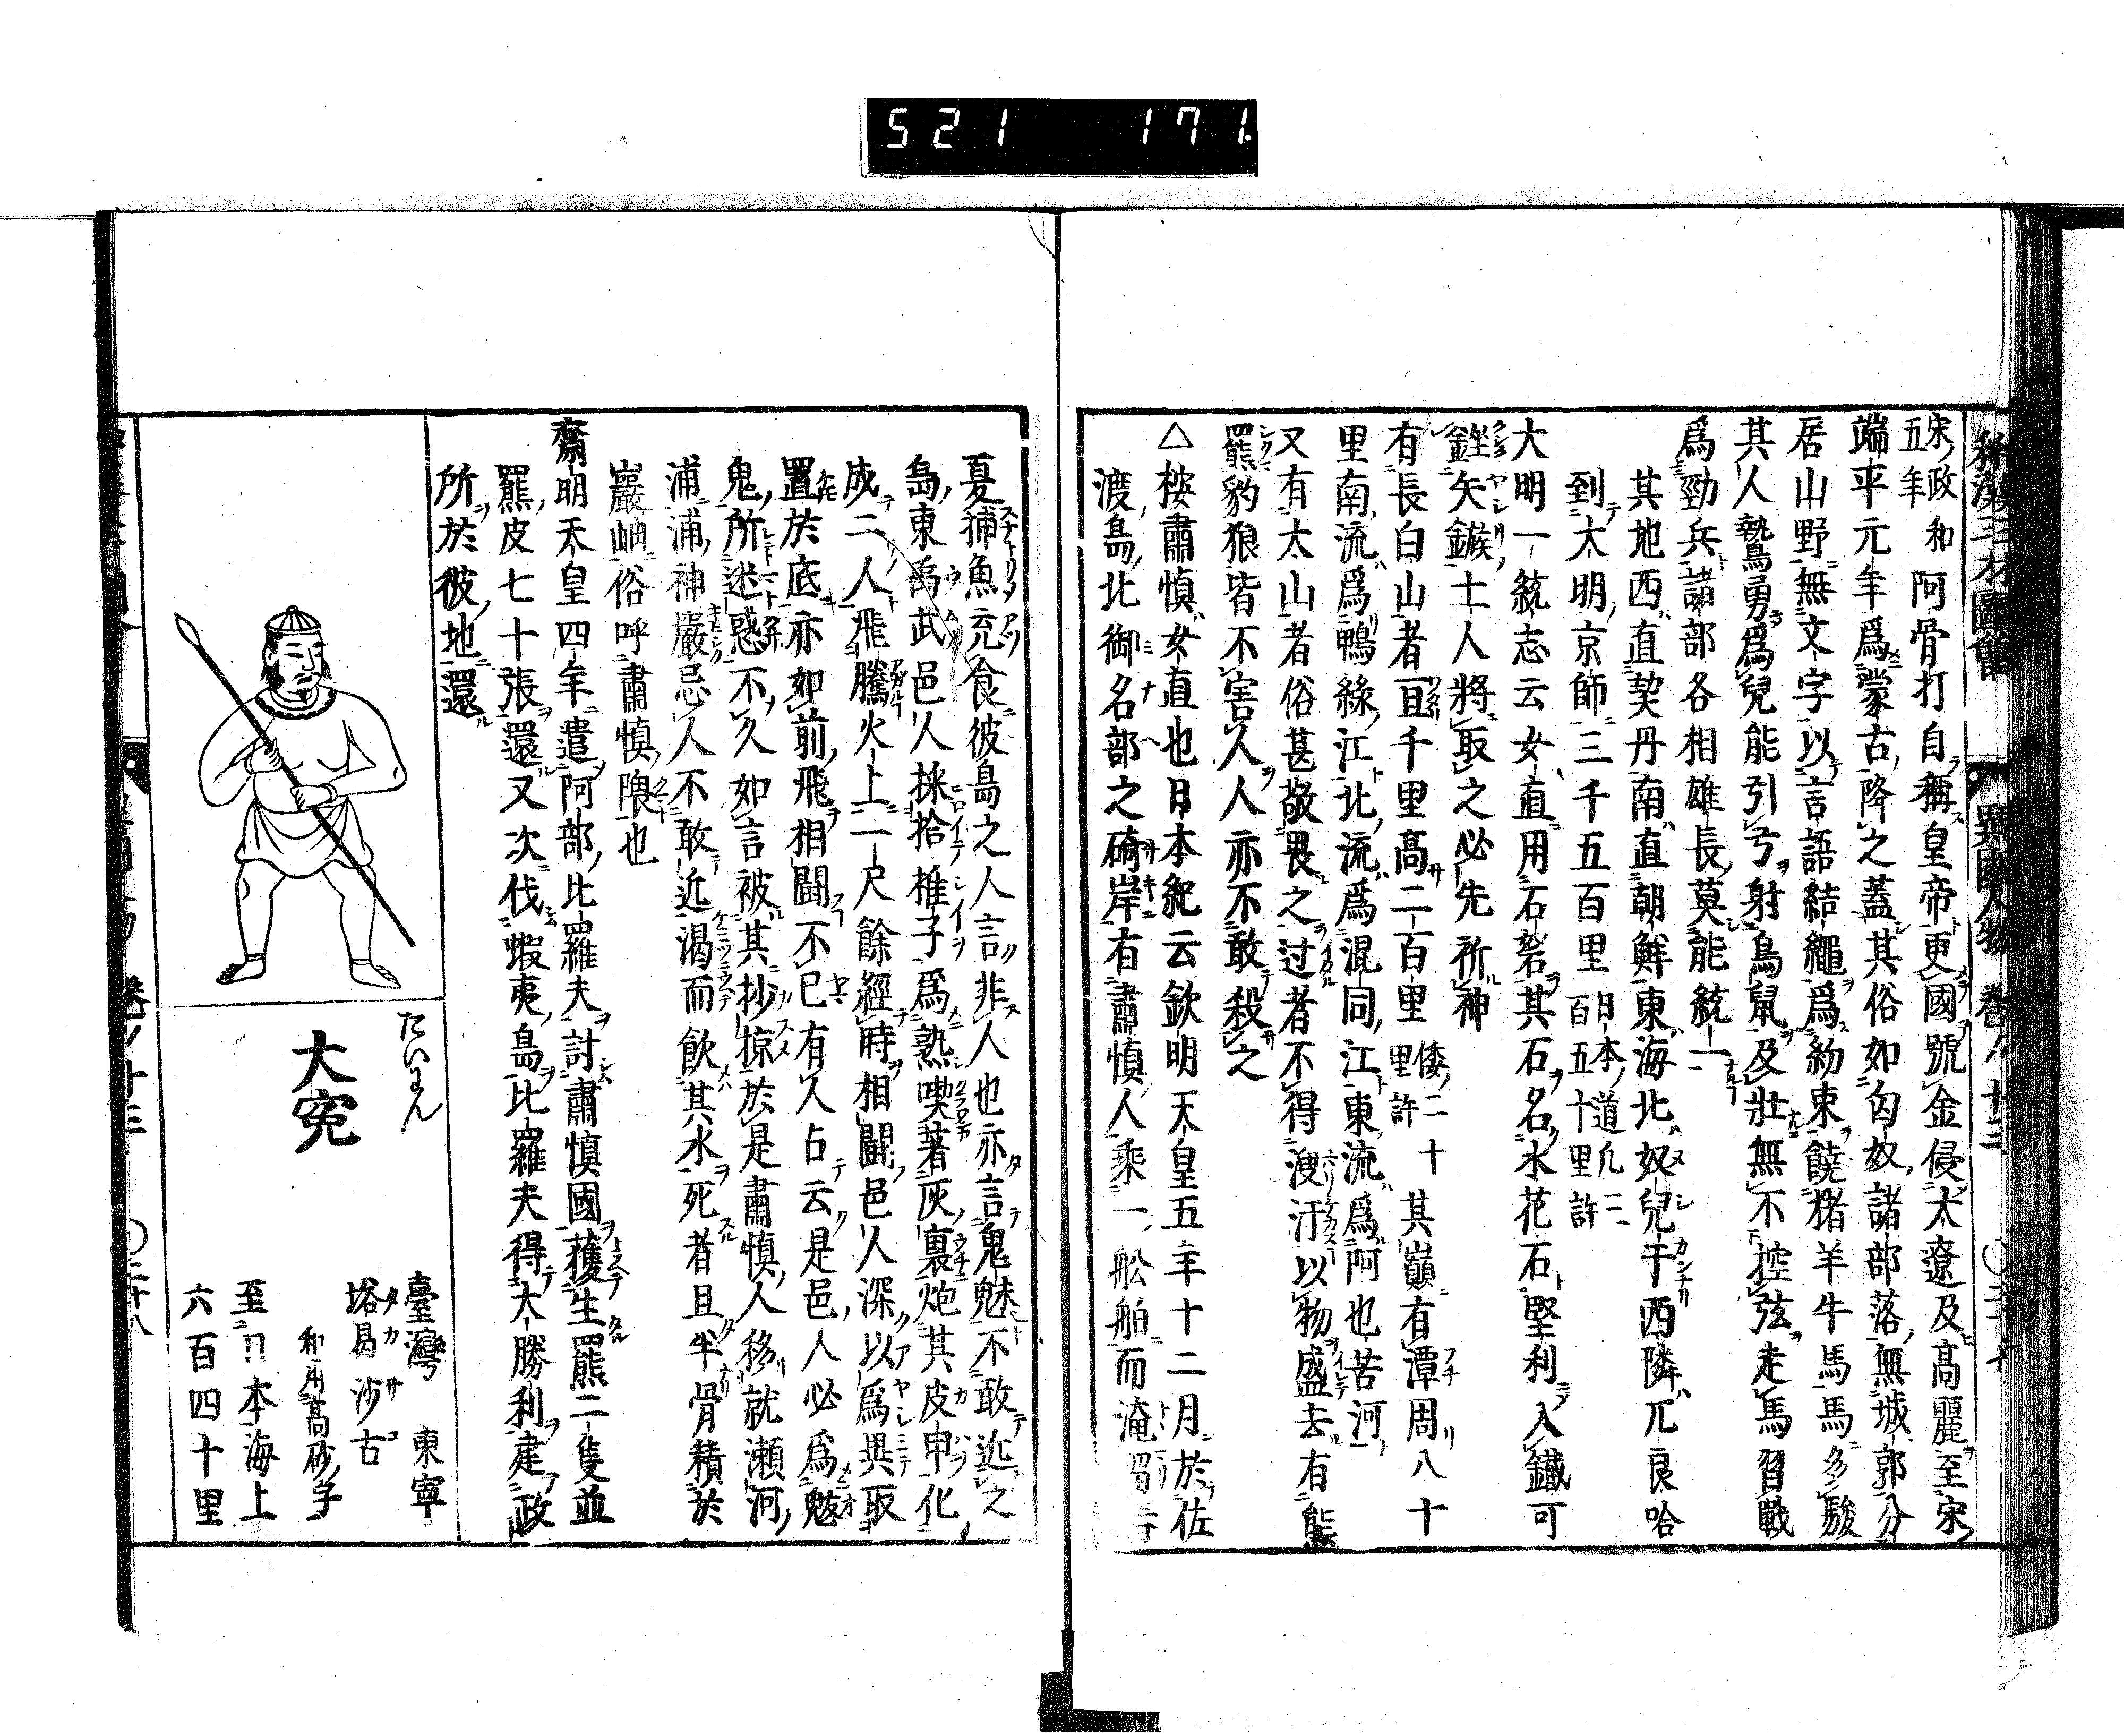 521 171.
和漢三才圖會 異國人物 卷ノ十三 〇二十七
宋政和五年 阿骨打自稱皇帝更國號金侵大遼及高麗至宋
端平元年爲蒙古降之蓋其俗如匈奴諸部落無城郭分
居山野無文字以言語結繩爲約束饒猪羊牛馬馬多駿
其人鷙勇爲兒能引弓射鳥鼠及壯無不控弦走馬習戰
爲勁兵諸部各相雄長莫能統一
其地西直契丹南直朝鮮東海北奴兒干西隣兀良哈
到大明京師三千五百里 日本道凡二百五十里許
大明一統志云女直用石砮其石名水花石堅利入鐵可
銼矢鏃土人將取之必先祈神
有長白山者亘千里高二百里 倭二十里許 其巓有潭周八十
里南流爲鴨綠江北流爲混同江東流爲阿也苦河
又有太山者俗甚敬畏之过者不得溲汙以物盛去有熊
羆豹狼皆不害人人亦不敢殺之
△按肅慎女直也日本紀云欽明天皇五年十二月於佐
渡島北御名部之碕岸有肅慎人乘一舩舶而淹留春
夏捕魚充食彼島之人言非人也亦言鬼魅不敢近之
島東禹武邑人採拾椎子爲熟喫著灰裏炮其皮甲化
成二人飛騰火上一尺餘經時相鬪邑人深以爲異取
置於底亦如前飛相鬪不已有人占云是邑人必爲魃
鬼所迷惑不久如言被其抄掠於是肅慎人移就瀬河
浦浦神嚴忌人不敢近渴而飲其水死者且半骨積於
巖岫俗呼肅慎隈也
齋明天皇四年遣阿部比羅夫討肅慎國獲生羆二隻並
羆皮七十張還又次伐蝦夷島比羅夫得大勝利建政
所於彼地還
たいわん
大寃
臺灣 東寧
塔曷沙古
和用高砂字
至日本海上
六百四十里
卷ノ十三 〇二十八